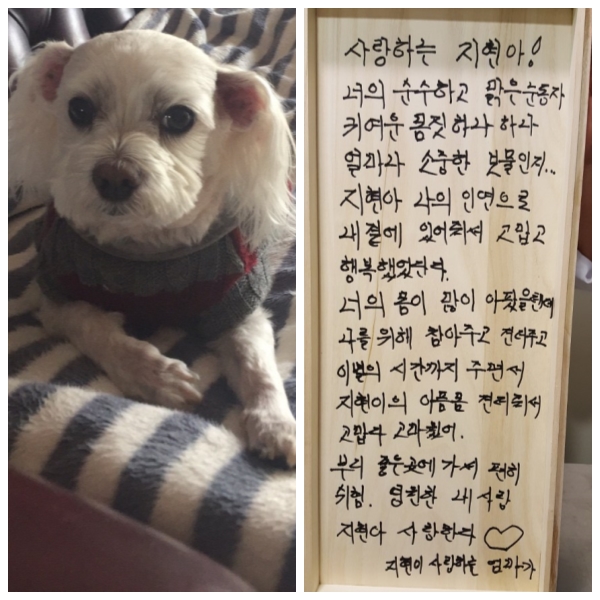 사랑하는 지현아!
너의 순수하고 맑은눈동자
귀여운 몸짓 하라 하라
얼마나 소중한 보물인지...
지현아 나의 인연으로
내 곁에 있어줘서 고맙고
행복했었단다.
너의 몸이 많이 아팠을텐데
나를 위해 참아주고 견뎌주고
이별의 시간까지 주면서
지현이의 아픔몸 견뎌줘서
고맙다 고마웠어.
부디 좋은곳에 가서 편히
쉬렴. 영원한 내사랑
지현아 사랑한다
지현이 사랑하는 엄마가